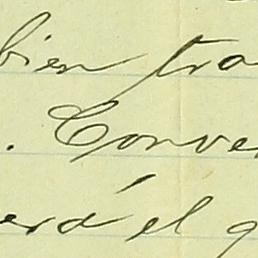 bien tra
. Conve
erá el q